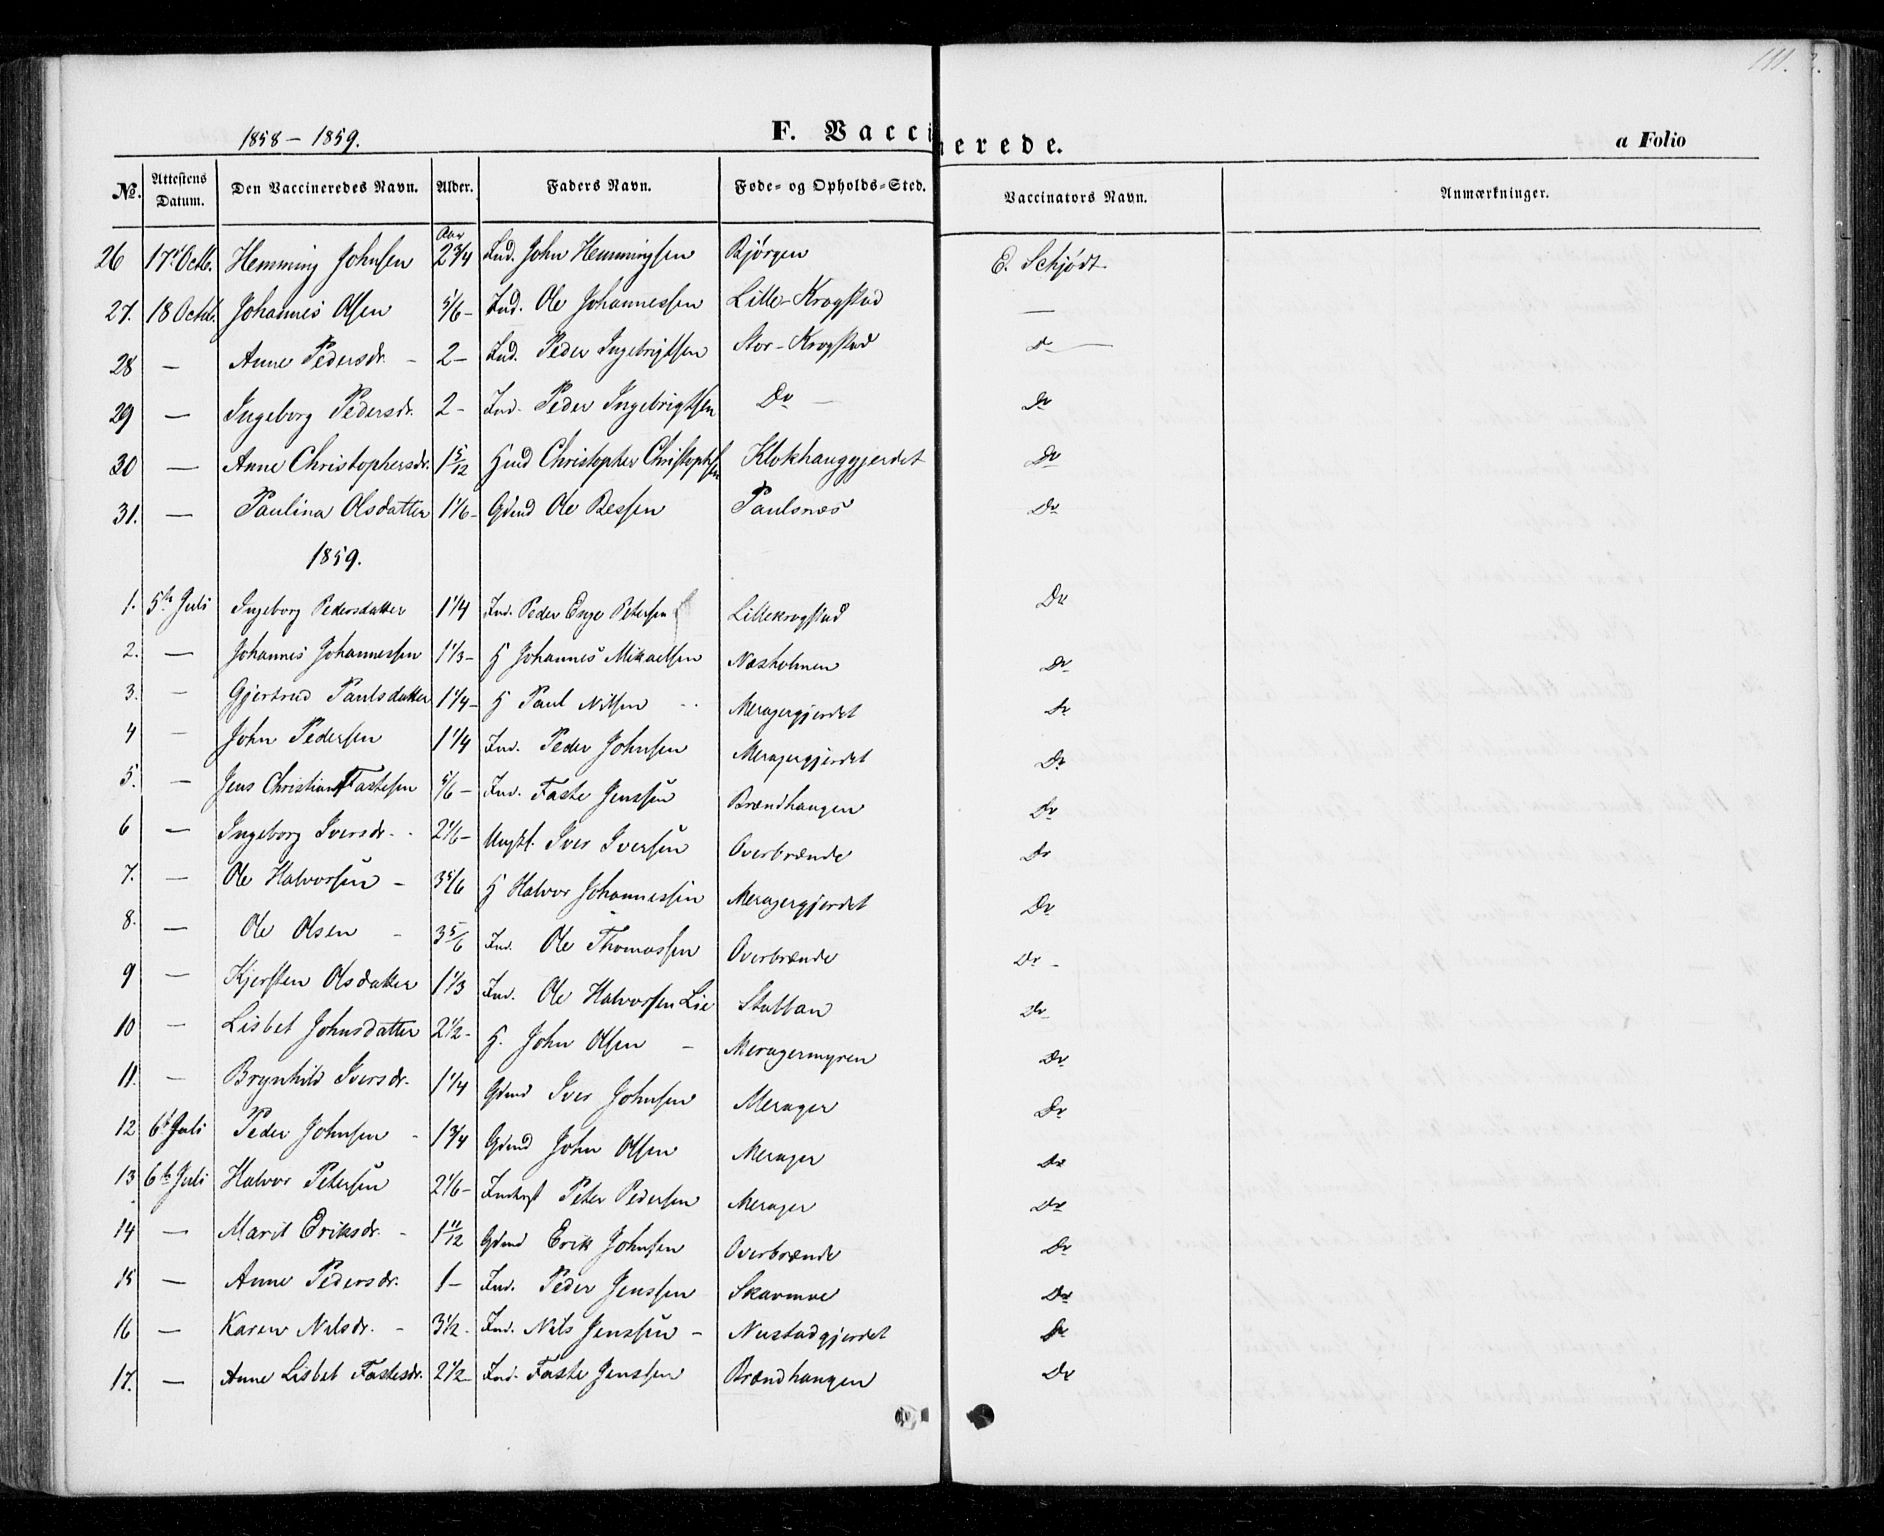 111.
1858 - 1859.
F. Vaccinerede.
a Folio
No. Attestens Datum. Den Vaccineredes Navn. Alder. Faders Navn. Føde- og Opholds-Sted. Vaccinators Navn. Anmærkninger.
Aar
26 17 Octb. Hemming Johnsen 2 3/4 Ind. John Hemmingsen Bjørgen E. Schjødt
27. 18 Octb. Johannes Olsen 5/6 - Ind. Ole Johannessen Lille-Krogstad —
28 — Anne Pedersdr. - 2 - Ind. Peder Ingebrigtsen Stor-Krogstad Do —
29 — Ingeborg Pedersdr. 2 - Ind. Peder Ingebrigtsen Do — Do
30 — Anne Christophersdr. 1 5/12 Hmd Christopher Christophersen Klokhauggjerdet Do
31. — Paulina Olsdatter 1 1/6 - Gdmd Ole Bessen Paulsnæs Do
1859.
1. 5te Juli Ingeborg Pedersdatter 1 1/4 Ind. Peder Enge Petersen Lillekrogstad Do
2. — Johannes Johannessen 1 1/3 - H Johannes Mikaelsen Næsholmen Do
3. — Gjertrud Paulsdatter 1 1/4 - H Paul Nilsen - - Meragergjerdet Do
4 — John Pedersen 1 1/4 Ind. Peder Johnsen Meragergjerdet Do
5. — Jens Christian Fastesen 5/6 - Ind. Faste Jenssen Brændhaugen Do
6 — Ingeborg Iversdr. - 2 1/6 - Ungkl. Iver Iversen Overbrænde Do
7. — Ole Halvorsen - 3 5/6 H Halvor Johannessen Meragergjerdet Do
8. — Ole Olsen - 3 5/6 Ind. Ole Thomassen Overbrænde Do -
9 — Kjersten Olsdatter 1 1/3 Ind. Ole Halvorsen Lie Stubban Do
10 — Lisbet Johnsdatter 2 1/2 - H. John Olsen - Meragermyren Do
11. — Brynhild Iversdr. 1 1/4 Gdmd Iver Johnsen Merager Do
12 6te Juli Peder Johnsen - 1 3/4 Gdmd John Olsen Merager Do
13 6te Juli Halvor Petersen 2 1/6 - Peter Pedersen Merager Do
14 — Marit Eriksdr. - 1 11/12 Gdmd Erik Johnsen Overbrænde Do
15 — Anne Pedersdr. 1 - Ind. Peder Jenssen Skavmoe Do
16 — Karen Nilsdr. - 3 1/2 - Ind. Nils Jenssen - Nustadgjerdet Do
17. — Anne Lisbet Fastesdr. 2 1/2 - Ind. Faste Jenssen Brændhaugen Do